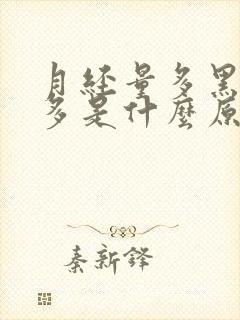 月经量多黑
多是什麼原
秦新鋒